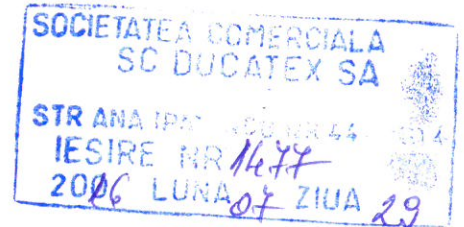 SOCIETATEA COMERCIALA
SC DUCATEX SA
STR ANA NR 44
IESIRE NR 1477
2016 LUNA 07 ZIUA 29